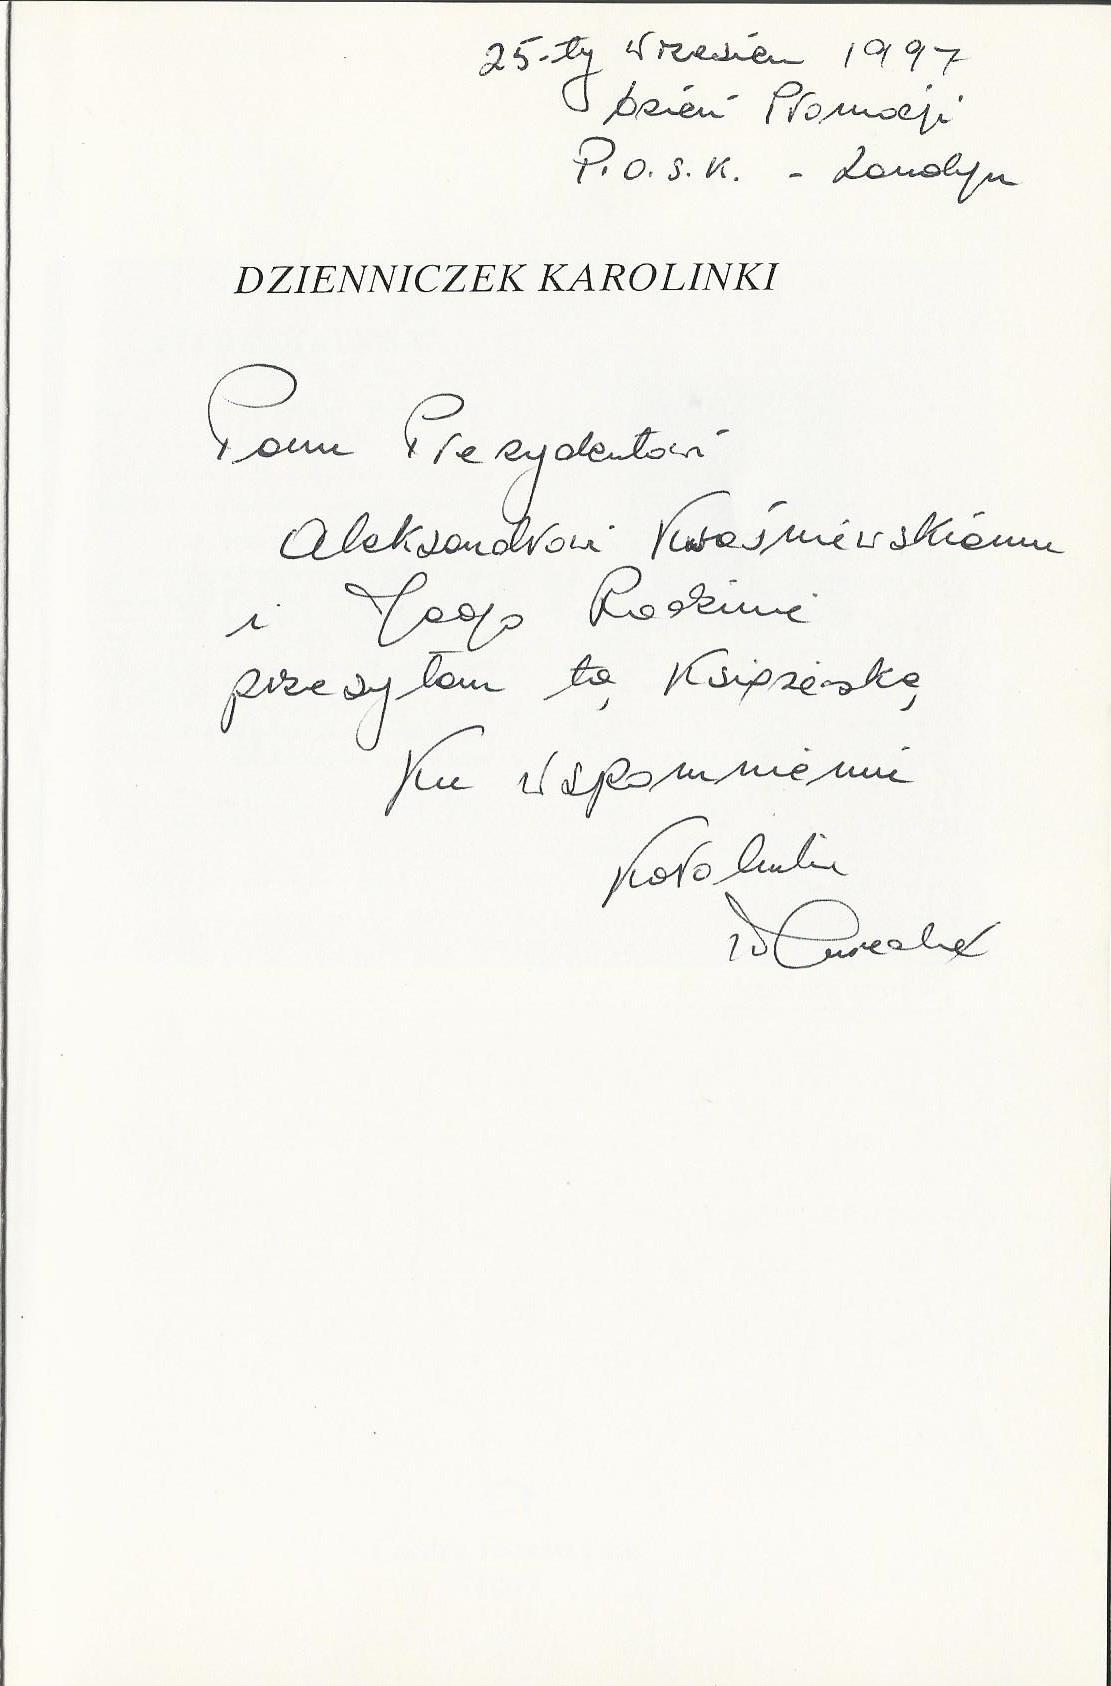 25-ty wrzesień 1997
Dzień Promocji
P.O.S.K. - Londyn
DZIENNICZEK KAROLINKI
Panu Prezydentowi
Aleksandrowi Kwaśniewskiemu
i Jego Rodzinie
przesyłam tą Książeńską
Ku wspomnieniu